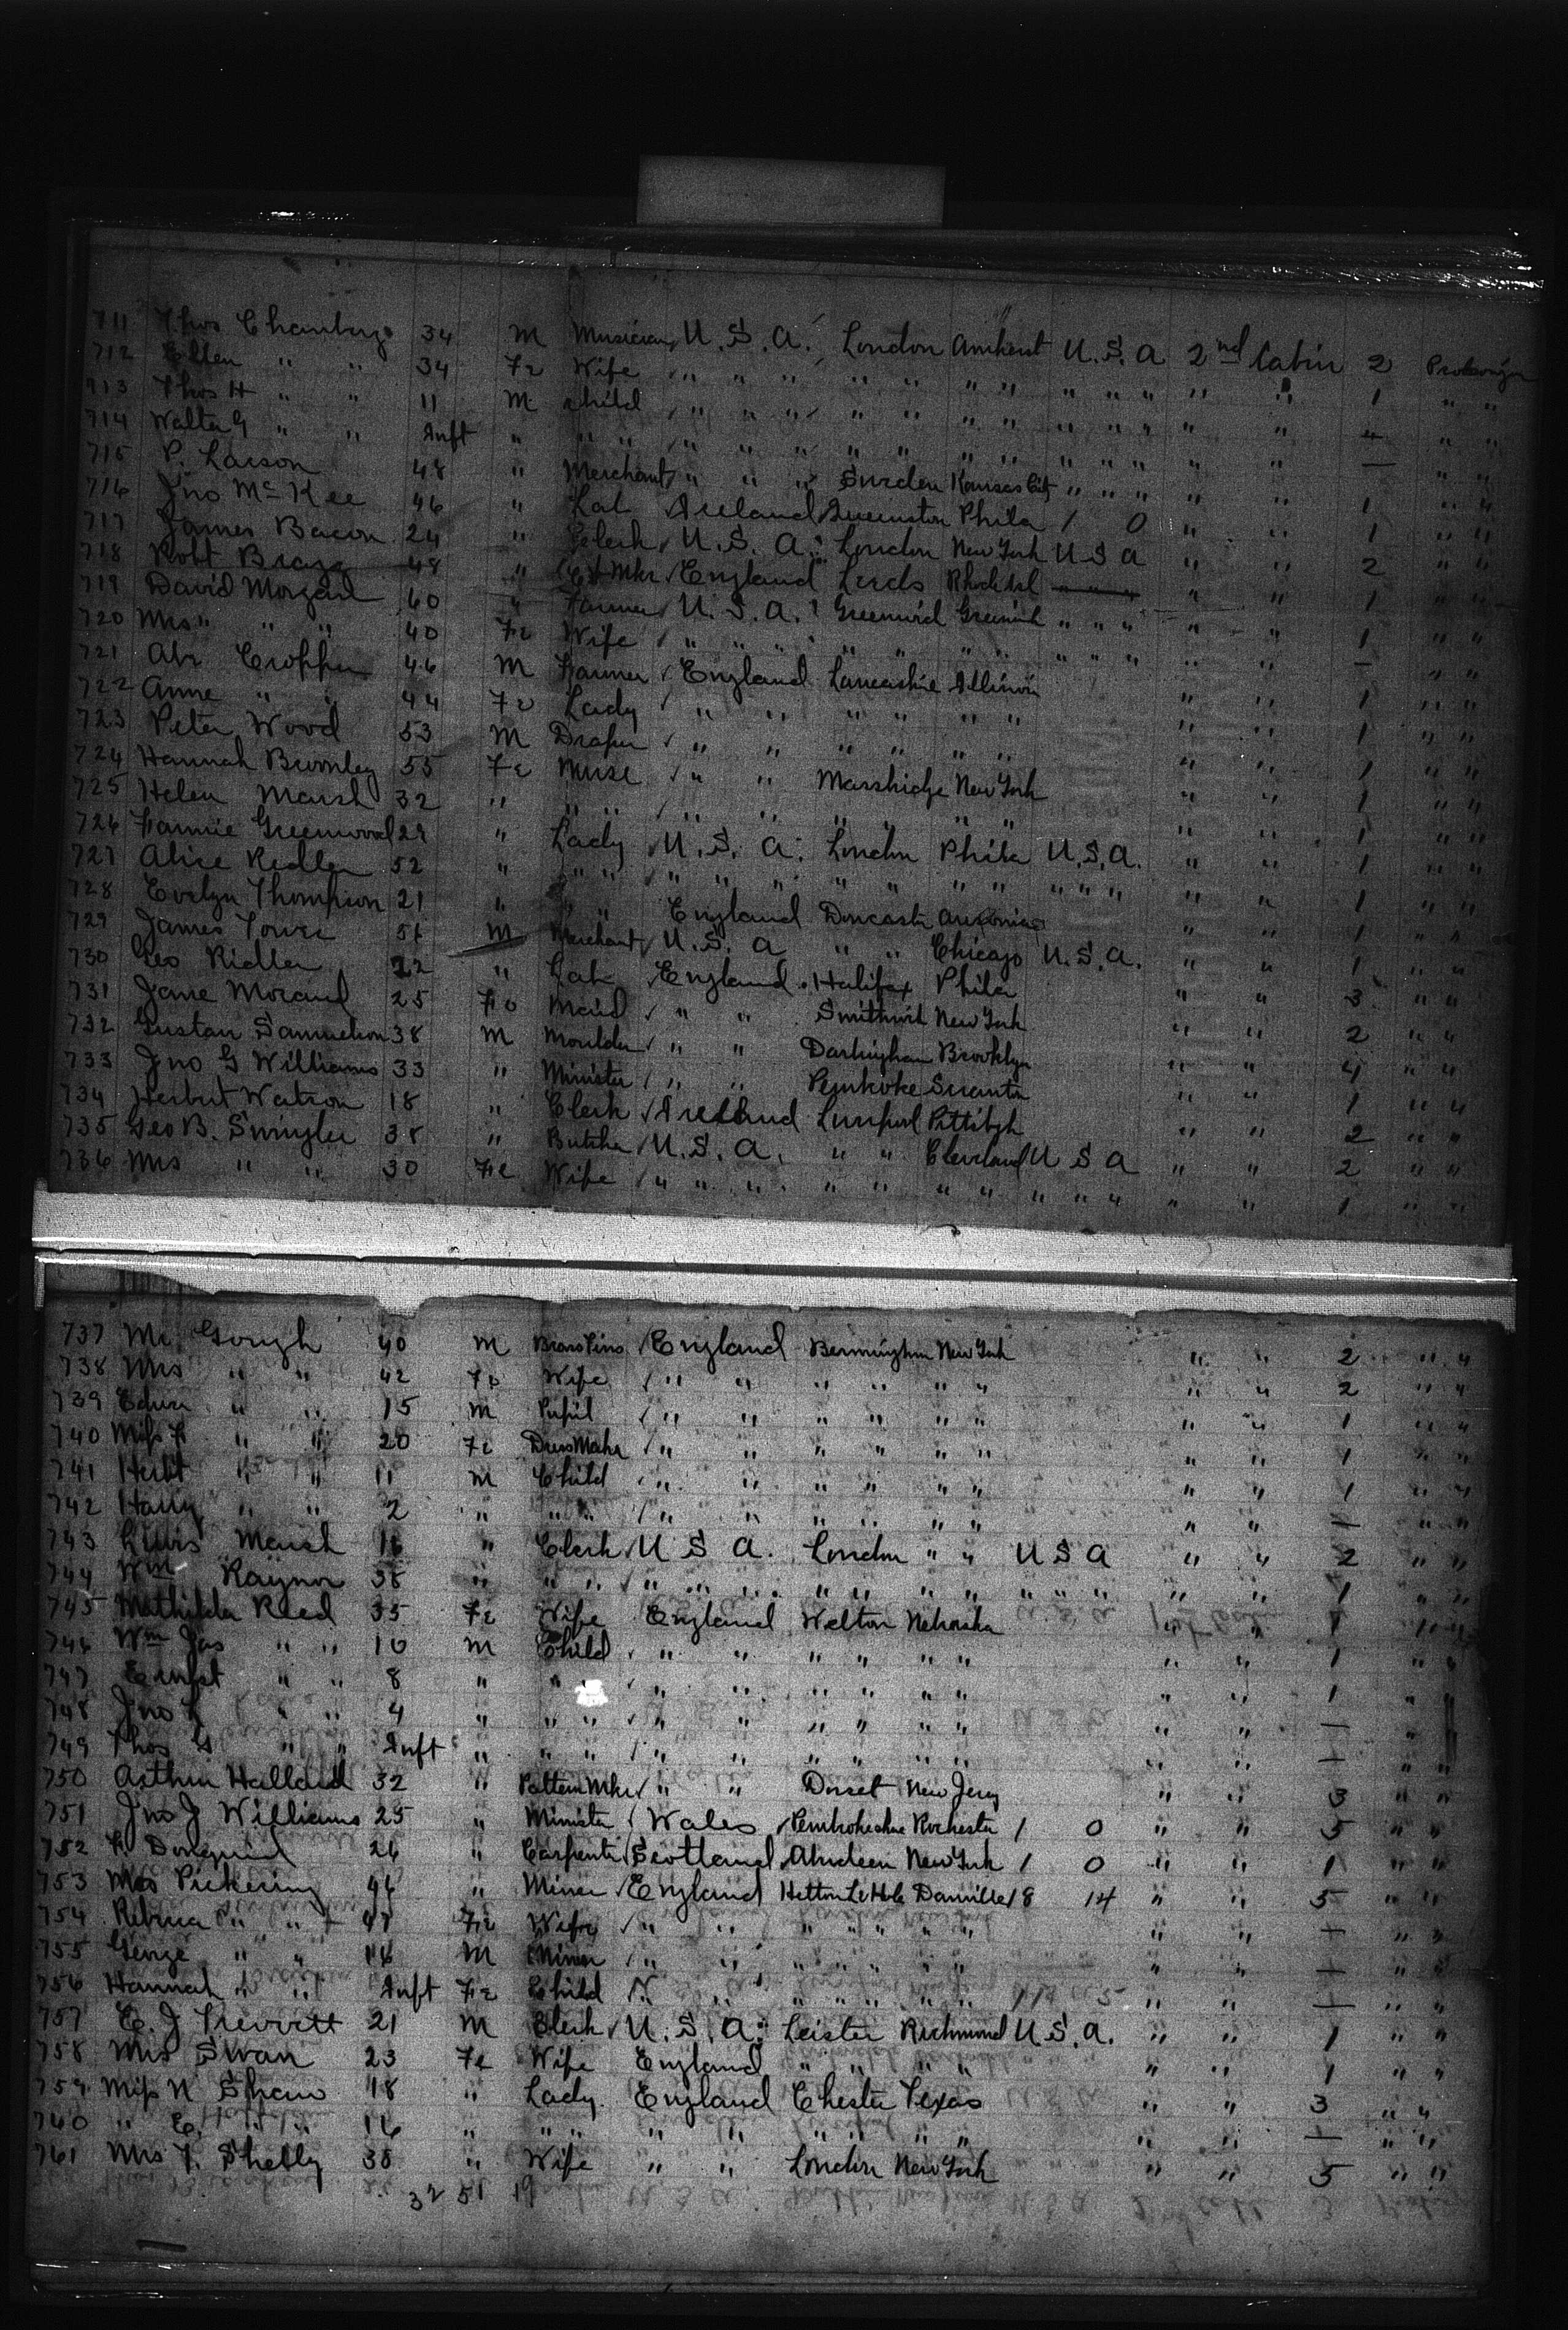 711 Thos Chambers 34 M Musician U.S.A. London Amherst U.S.A 2nd Cabin 2
712 Ellen " " 34 Fe Wife " " " " " " " " " " " " 1 " "
713 Thos H " " 11 M Child " " " " " " " " " " " " " "
714 Walter G " " Inft " " " " " " " " " " " " " " " — " "
715 P. Larson 48 " Merchant " " " Sweden Kansas City " " " " " 1 " "
716 Jno McKee 46 " Lab Ireland Queenston Phila 1 0 " " 1 " "
717 James Bacon 24 " Clerk U.S.A. London New York U S A " " 2 " "
718 Robt Bragg 48 " Mkr England Leeds Rhode Isl " " 1 " "
719 David Morgan 60 " Farmer U.S.A. Greenwich Greenwich " " " " " 1 " "
720 Mrs " " " 40 Fe Wife " " " " " " " " " " " " — " "
721 Abr Cropper 46 M Farmer England Lancashire Illinois " " 1 " "
722 Anne " " 44 Fe Lady " " " " " " " " 1 " "
723 Peter Wood 53 M Draper " " " " " " " " 1 " "
724 Hannah Bromley 55 Fe Nurse " " New York " " 1 " "
725 Helen Marsh 32 " " " " " " " " " " " 1 " "
726 Fannie Greenwood 29 " Lady U.S.A. London Phila U.S.A. " " 1 " "
727 Alice Ridler 52 " " " " " " " " " " " " " " " 1 " "
728 Evelyn Thompson 21 " " " England Doncaster " " 1 " "
729 James Tower M Merchant U.S.A " " Chicago U.S.A. " " 1 " "
730 Geo Ridler 22 " Lab England Halifax Phila " " 3 " "
731 Jane Morand 25 Fe Maid " " New York " " 2 " "
732 Gustav Samuelson 38 M Moulder " " Brooklyn " " 4 " "
733 Jno G Williams 33 " Minister " " Pembroke Scranton " " 1 " "
734 Herbert Watson 18 " Clerk Ireland Liverpool Pittsbgh " " 2 " "
735 Geo B. Swingler 38 " Butcher U.S.A. " " Cleveland U S A " " 2 " "
736 Mrs " " 30 Fe Wife " " " " " " " " " " " " 1 " "
737 Mr Gough 40 M England Bermingham New York " " 2 " "
738 Mrs " " 42 Fe Wife " " " " " " " " 2 " "
739 Edwn " " 15 M Pupil " " " " " " " " 1 " "
740 Miss F " " 20 Fe Dress Makr " " " " " " " " 1 " "
741 Herbt " " 11 M Child " " " " " " " " 1 " "
742 Harry " " 2 " " " " " " " " " " " — " "
743 Lewis Marsh 16 " Clerk U S A. London " " U S A " " 2 " "
744 Wm Raynor 38 " " " " " " " " " " " " " " " 1 " "
745 Mathilda Reed 35 Fe Wife England Welton Nebraska " " 1 " "
746 Wm Jas " " 10 M Child " " " " " " " " 1 " "
747 Ernest " " 8 " " " " " " " " " " 1 " "
748 Jno L " " 4 " " " " " " " " " " " — " "
749 Thos G " " Inft " " " " " " " " " " " — " "
750 Arthur Halland 32 " Pattern Mkr " " Dorset New Jersy " " 3 " "
751 Jno J Williams 25 " Minister Wales Pembrokeshire Rochester 1 0 " " 5 " "
752 26 " Carpenter Scotland Aberdeen New York 1 0 " " 1 " "
753 Pickering 44 " Miner England Hetton Le Hole Danville 18 14 " " 5 " "
754 Rebecca " " 47 Fe Wife " " " " " " " " — " "
755 George " " 16 M Miner " " " " " " " " — " "
756 Hannah " " Inft Fe Child " " " " " " " " — " "
757 E. J Trevvett 21 M Clerk U.S.A. Leister Richmond U.S.A. " " 1 " "
758 Mrs Swan 23 Fe Wife England " " " " " " 1 " "
759 Miss N Shaw 18 " Lady England Chester Texas " " 3 " "
760 " E. " " 16 " " " " " " " " " " " — " "
761 Mrs T. Shelly 38 " Wife " " London New York " " 5 " "
32 51 19